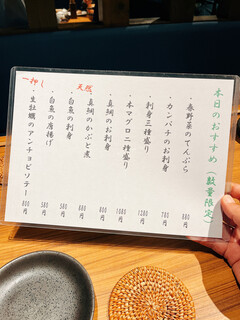 本日のおすすめ（数量限定）
・春野菜のてんぷら 880円
・カンパチのお刺身 780円
・刺身三種盛り 1280円
・本マグロ二種盛り 1080円
・真鯛のお刺身 880円
天然
・真鯛のかぶと煮 880円
・白魚の刺身 580円
・白魚の唐揚げ 580円
一押し
・生牡蠣のアンチョビソテー 800円